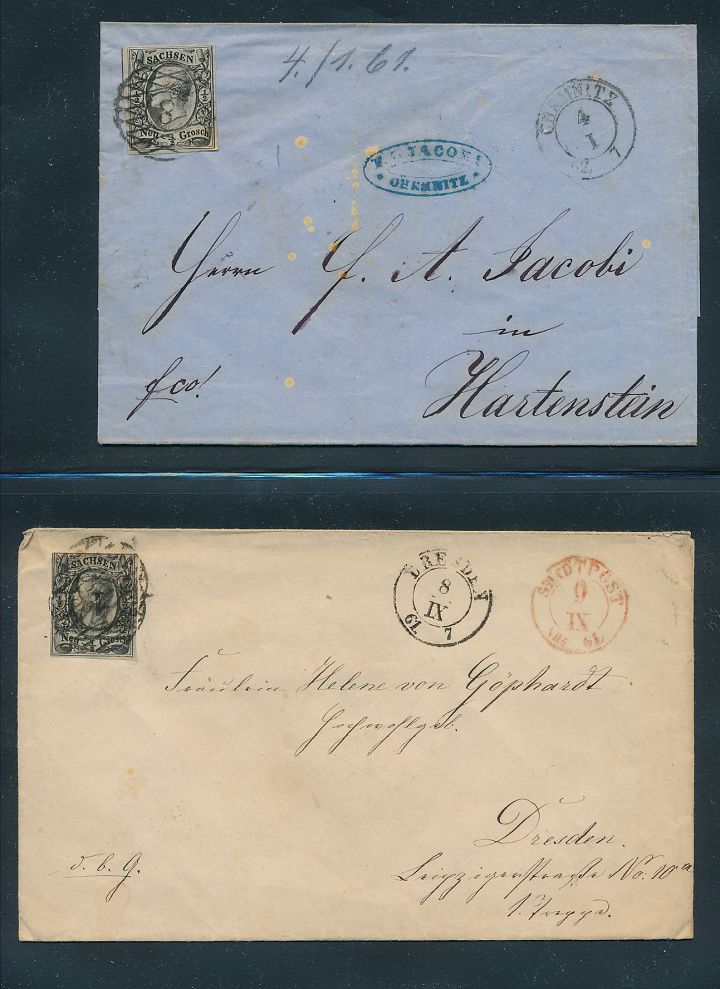 SACHSEN
Neu-Grosch
4./1. 61.
CHEMNITZ
4
I
62
JACOBI
CHEMNITZ
Herrn F. A. Jacobi
in
fco!
Hartenstein
SACHSEN
Neu Grosch
DRESDEN
8
IX
61 7
STADTPOST
9
IX
61
Fräulein Helene von Göphardt
Hochwohlgeb.
Dresden.
d. b. G.
Leipzigerstraße No: 10a
1. Treppe.